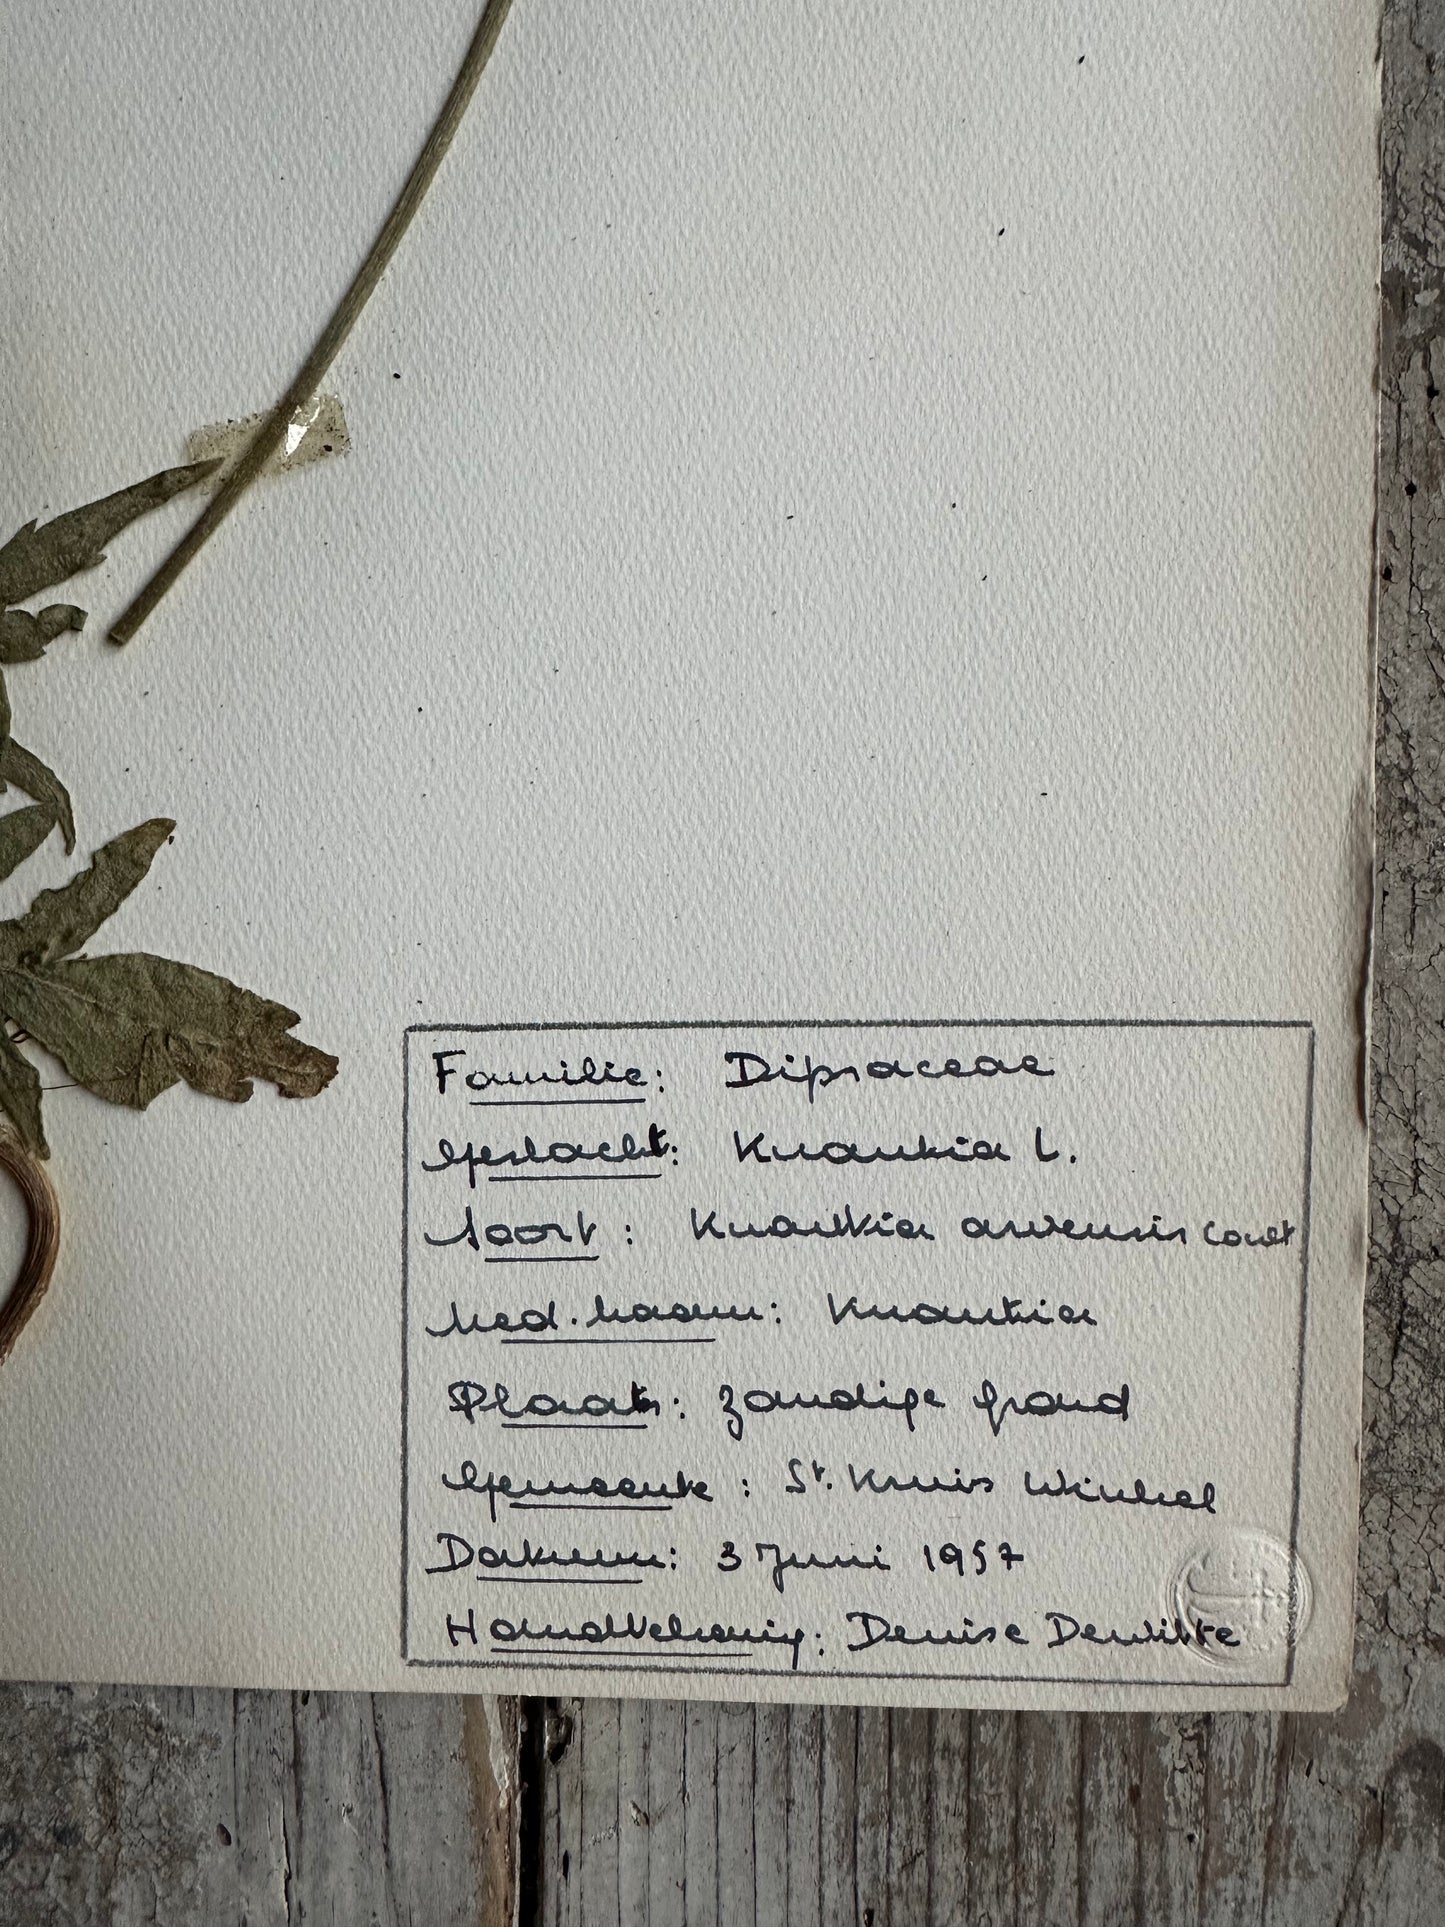 Familie: Dipsaceae
Geslacht: Knautia L.
Soort: Knautia arvensis Coult
Ned. naam: Knautia
Plaats: zandige grond
Gemeente: St. Kruis Winkel
Datum: 3 Juni 1957
Handtekening: Denise Dewitte